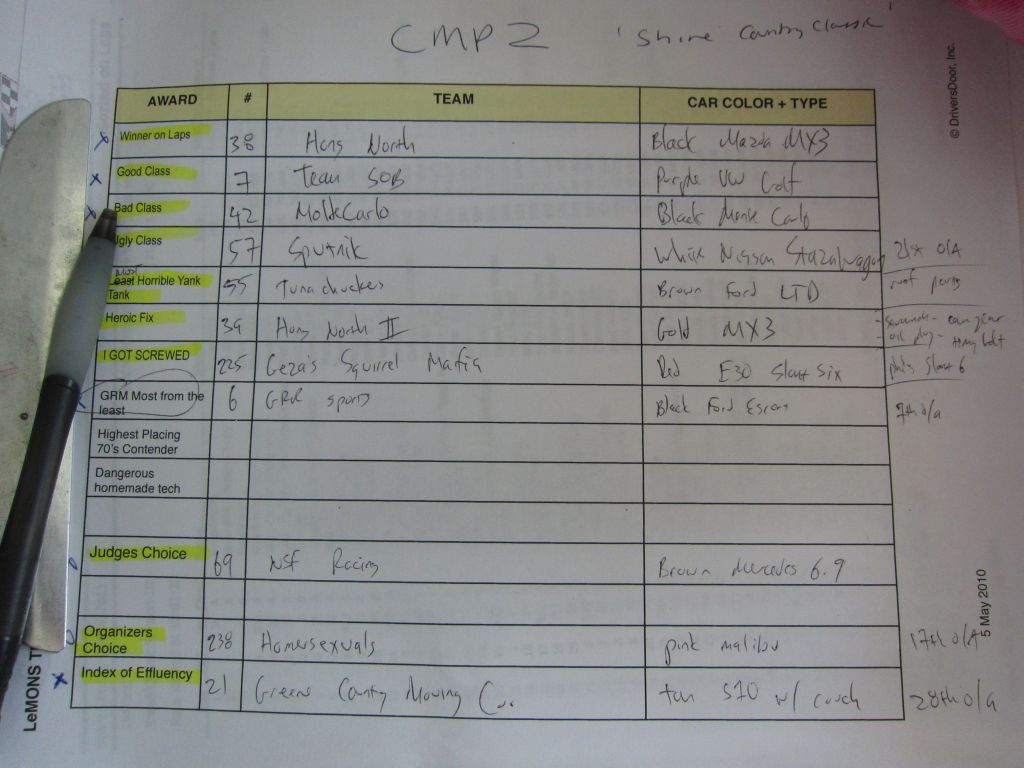 CMP 2 'Shine Country Classic'
© DriversDoor, Inc.
AWARD # TEAM CAR COLOR + TYPE
x Winner on Laps 38 Hong North Black Mazda MX3
x Good Class 7 Team SOB Purple VW Golf
x Bad Class 42 MolteCarlo Black Monte Carlo
Ugly Class 57 Sputnik White Nissan Stanzawagon 21st O/A
Most
Least Horrible Yank 55 Tunachuckers Brown Ford LTD roof
Tank
Heroic Fix 39 Hong North II Gold MX3
I GOT SCREWED 225 Geza's Squirrel Mafia Red E30 Slant Six Slant 6
GRM Most from the 6 GRR sports Black Ford Escort 7th o/a
least
Highest Placing
70's Contender
Dangerous
homemade tech
Judges Choice 69 NSF Racing Brown Mercedes 6.9
Organizers 238 Homersexuals pink malibu 17th O/A
Choice
x Index of Effluency 21 Greens County Moving Co. tan S10 w/ couch 28th o/a
LeMONS T
5 May 2010